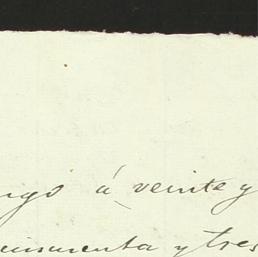 ngo á veinte y
cincuenta y tres